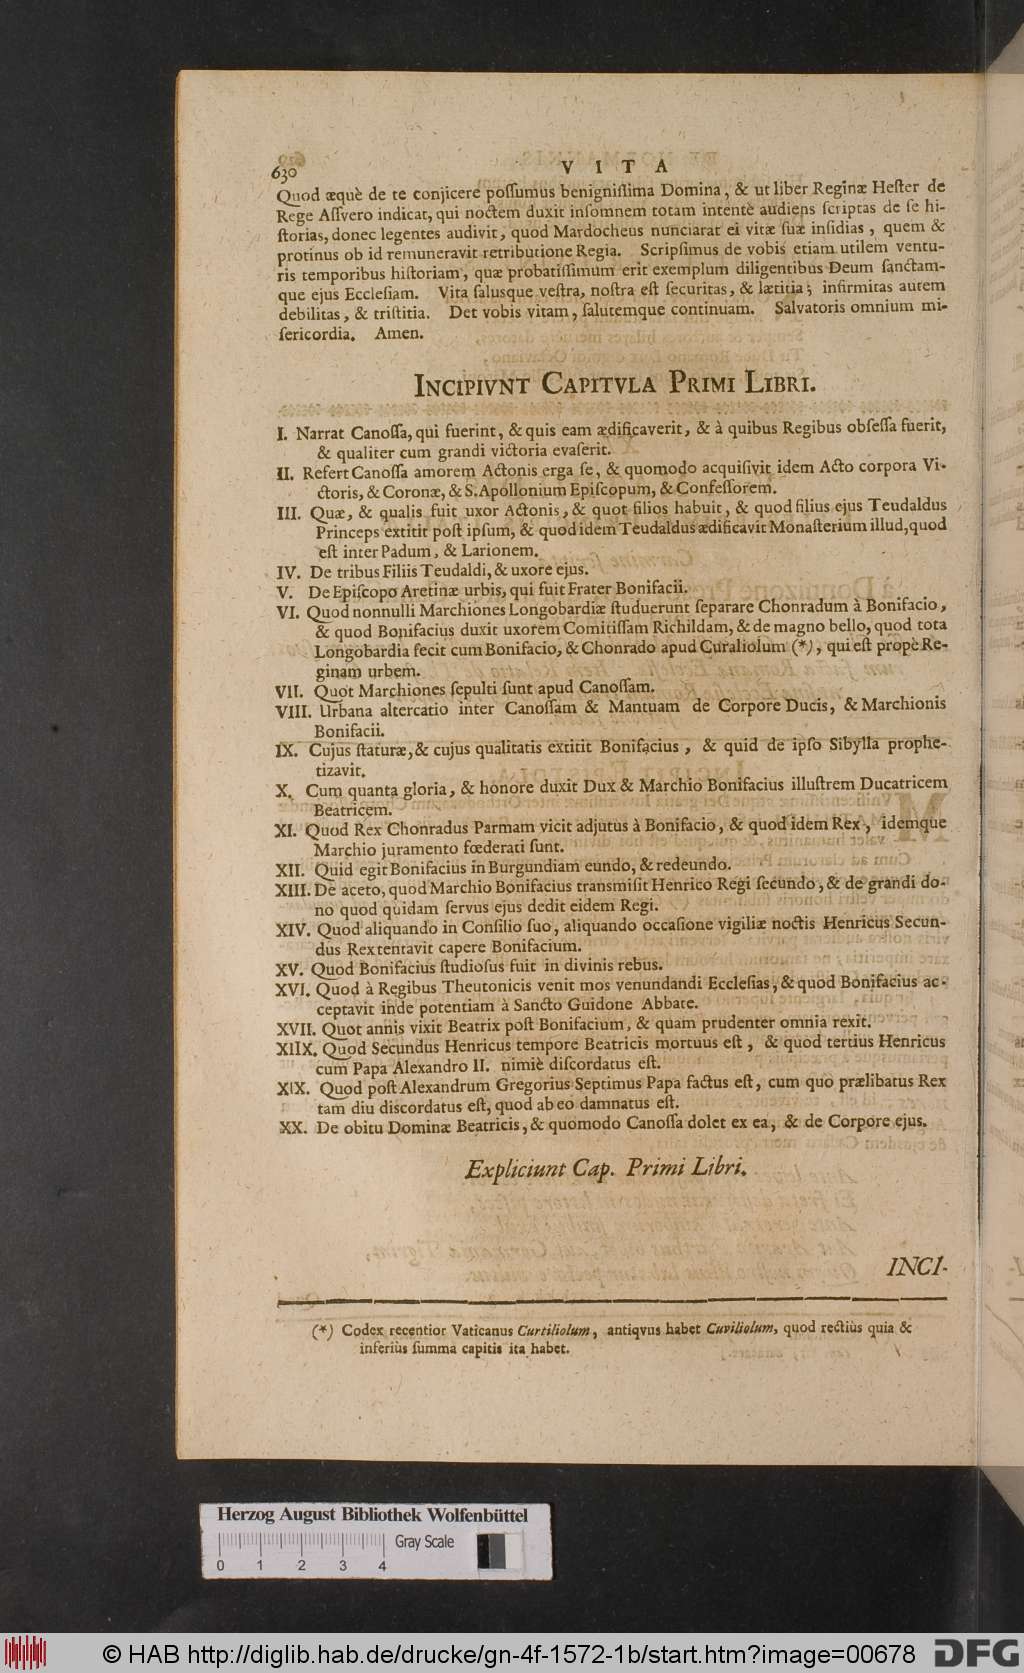 630
V I T A
Quod æquè de te conjicere poſſumus benigniſſima Domina, & ut liber Reginæ Heſter de
Rege Aſſvero indicat, qui noctem duxit inſomnem totam intentè audiens ſcriptas de ſe hi-
ſtorias, donec legentes audivit, quod Mardocheus nunciarat ei vitæ ſuæ inſidias, quem &
protinus ob id remuneravit retributione Regia. Scripſimus de vobis etiam utilem ventu-
ris temporibus hiſtoriam, quæ probatiſſimum erit exemplum diligentibus Deum ſanctam-
que ejus Eccleſiam. Vita ſalusque veſtra, noſtra eſt ſecuritas, & lætitia; infirmitas autem
debilitas, & triſtitia. Det vobis vitam, ſalutemque continuam. Salvatoris omnium mi-
ſericordia. Amen.
INCIPIVNT CAPITVLA PRIMI LIBRI.
I. Narrat Canoſſa, qui fuerint, & quis eam ædificaverit, & à quibus Regibus obſeſſa fuerit,
& qualiter cum grandi victoria evaſerit.
II. Refert Canoſſa amorem Actonis erga ſe, & quomodo acquiſivit idem Acto corpora Vi-
ctoris, & Coronæ, & S. Apollonium Epiſcopum, & Confeſſorem.
III. Quæ, & qualis fuit uxor Actonis, & quot filios habuit, & quod filius ejus Teudaldus
Princeps extitit poſt ipſum, & quod idem Teudaldus ædificavit Monaſterium illud, quod
eſt inter Padum, & Larionem.
IV. De tribus Filiis Teudaldi, & uxore ejus.
V. De Epiſcopo Aretinæ urbis, qui fuit Frater Bonifacii.
VI. Quod nonnulli Marchiones Longobardiæ ſtuduerunt ſeparare Chonradum à Bonifacio,
& quod Bonifacius duxit uxorem Comitiſſam Richildam, & de magno bello, quod tota
Longobardia fecit cum Bonifacio, & Chonrado apud Curaliolum (*), qui eſt propè Re-
ginam urbem.
VII. Quot Marchiones ſepulti ſunt apud Canoſſam.
VIII. Urbana altercatio inter Canoſſam & Mantuam de Corpore Ducis, & Marchionis
Bonifacii.
IX. Cujus ſtaturæ, & cujus qualitatis extitit Bonifacius, & quid de ipſo Sibylla prophe-
tizavit.
X. Cum quanta gloria, & honore duxit Dux & Marchio Bonifacius illuſtrem Ducatricem
Beatricem.
XI. Quod Rex Chonradus Parmam vicit adjutus à Bonifacio, & quod idem Rex, idemque
Marchio juramento fœderati ſunt.
XII. Quid egit Bonifacius in Burgundiam eundo, & redeundo.
XIII. De aceto, quod Marchio Bonifacius transmiſit Henrico Regi ſecundo, & de grandi do-
no quod quidam ſervus ejus dedit eidem Regi.
XIV. Quod aliquando in Conſilio ſuo, aliquando occaſione vigiliæ noctis Henricus Secun-
dus Rex tentavit capere Bonifacium.
XV. Quod Bonifacius ſtudioſus fuit in divinis rebus.
XVI. Quod à Regibus Theutonicis venit mos venundandi Eccleſias, & quod Bonifacius ac-
ceptavit inde potentiam à Sancto Guidone Abbate.
XVII. Quot annis vixit Beatrix poſt Bonifacium, & quam prudenter omnia rexit.
XIIX. Quod Secundus Henricus tempore Beatricis mortuus eſt, & quod tertius Henricus
cum Papa Alexandro II. nimiè diſcordatus eſt.
XIX. Quod poſt Alexandrum Gregorius Septimus Papa factus eſt, cum quo prælibatus Rex
tam diu discordatus eſt, quod ab eo damnatus eſt.
XX. De obitu Dominæ Beatricis, & quomodo Canoſſa dolet ex ea, & de Corpore ejus.
Expliciunt Cap. Primi Libri.
INCI-
(*) Codex recentior Vaticanus Curtiliolum, antiqvus habet Cuviliolum, quod rectiùs quia &
inferiùs ſumma capitis ita habet.
Herzog August Bibliothek Wolfenbüttel
Gray Scale
0 1 2 3 4
© HAB http://diglib.hab.de/drucke/gn-4f-1572-1b/start.htm?image=00678
DFG